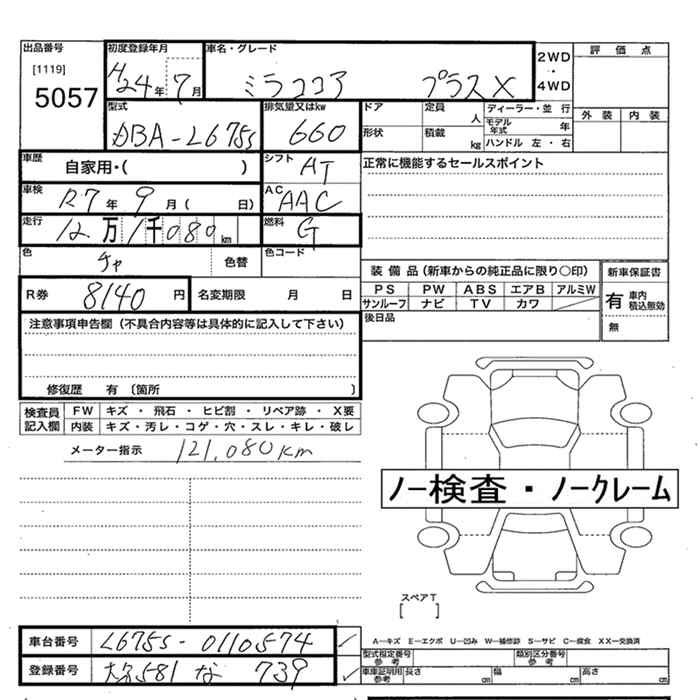 出品番号
[1119]
5057
初度登録年月
H24年7月
車名・グレード
ミラココア プラスX
2WD
・
4WD
評価点
外装 内装
型式
DBA-L675S
排気量又はkw
660
ドア
定員
人
ディーラー・並 行
形状
積載
kg
モデル年式
年
ハンドル 左・右
車歴
自家用・( )
シフト
AT
正常に機能するセールスポイント
車検
R7年9月( 日)
AC
AAC
走行
12万1千080km
燃料
G
色
チャ
色替
色コード
装備品(新車からの純正品に限り○印)
PS PW ABS エアB アルミW
サンルーフ ナビ TV カワ
新車保証書
有 車内積込無効
無
R券
8140円
名変期限 月 日
後日品
注意事項申告欄(不具合内容等は具体的に記入して下さい)
修復歴 有 〔箇所 〕
検査員記入欄
FW キズ・飛石・ヒビ割・リペア跡・X要
内装 キズ・汚レ・コゲ・穴・スレ・キレ・破レ
メーター指示 121,080km
ノー検査・ノークレーム
スペアT
[ ]
車台番号 L675S-0110574
登録番号 581 な 739
A―キズ E―エクボ U―凹み W―補修跡 S―サビ C―腐食 XX―交換済
型式指定番号 参考
類別区分番号 参考
車庫証明用 参考
長さ cm
幅 cm
高さ cm